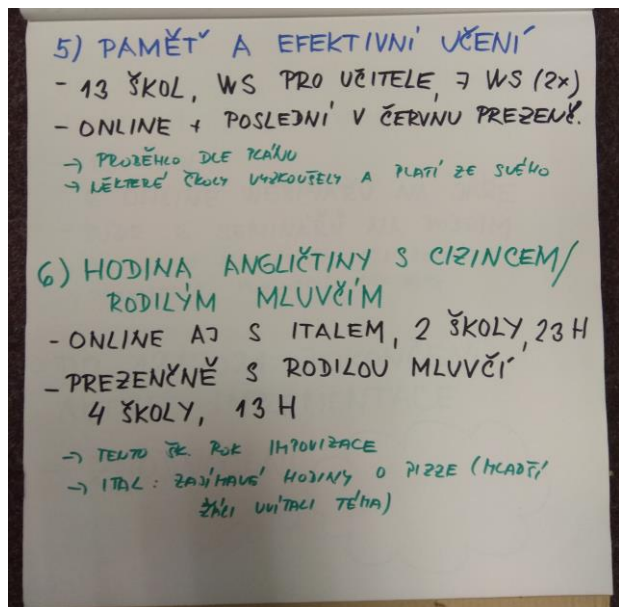 5) PAMĚŤ A EFEKTIVNÍ UČENÍ
- 13 ŠKOL, WS PRO UČITELE, 7 WS (2x)
- ONLINE + POSLEDNÍ V ČERVNU PREZENČ.
→ PROBĚHLO DLE PLÁNU
→ NĚKTERÉ ŠKOLY VYZKOUŠELY A PLATÍ ZE SVÉHO
6) HODINA ANGLIČTINY S CIZINCEM/
RODILÝM MLUVČÍM
- ONLINE AJ S ITALEM, 2 ŠKOLY, 23 H
- PREZENČNĚ S RODILOU MLUVČÍ
4 ŠKOLY, 13 H
→ TENTO ŠK. ROK IMPROVIZACE
→ ITAL: ZAJÍMAVÉ HODINY O PIZZE (MLADŠÍ
ŽÁCI UVÍTALI TÉMA)